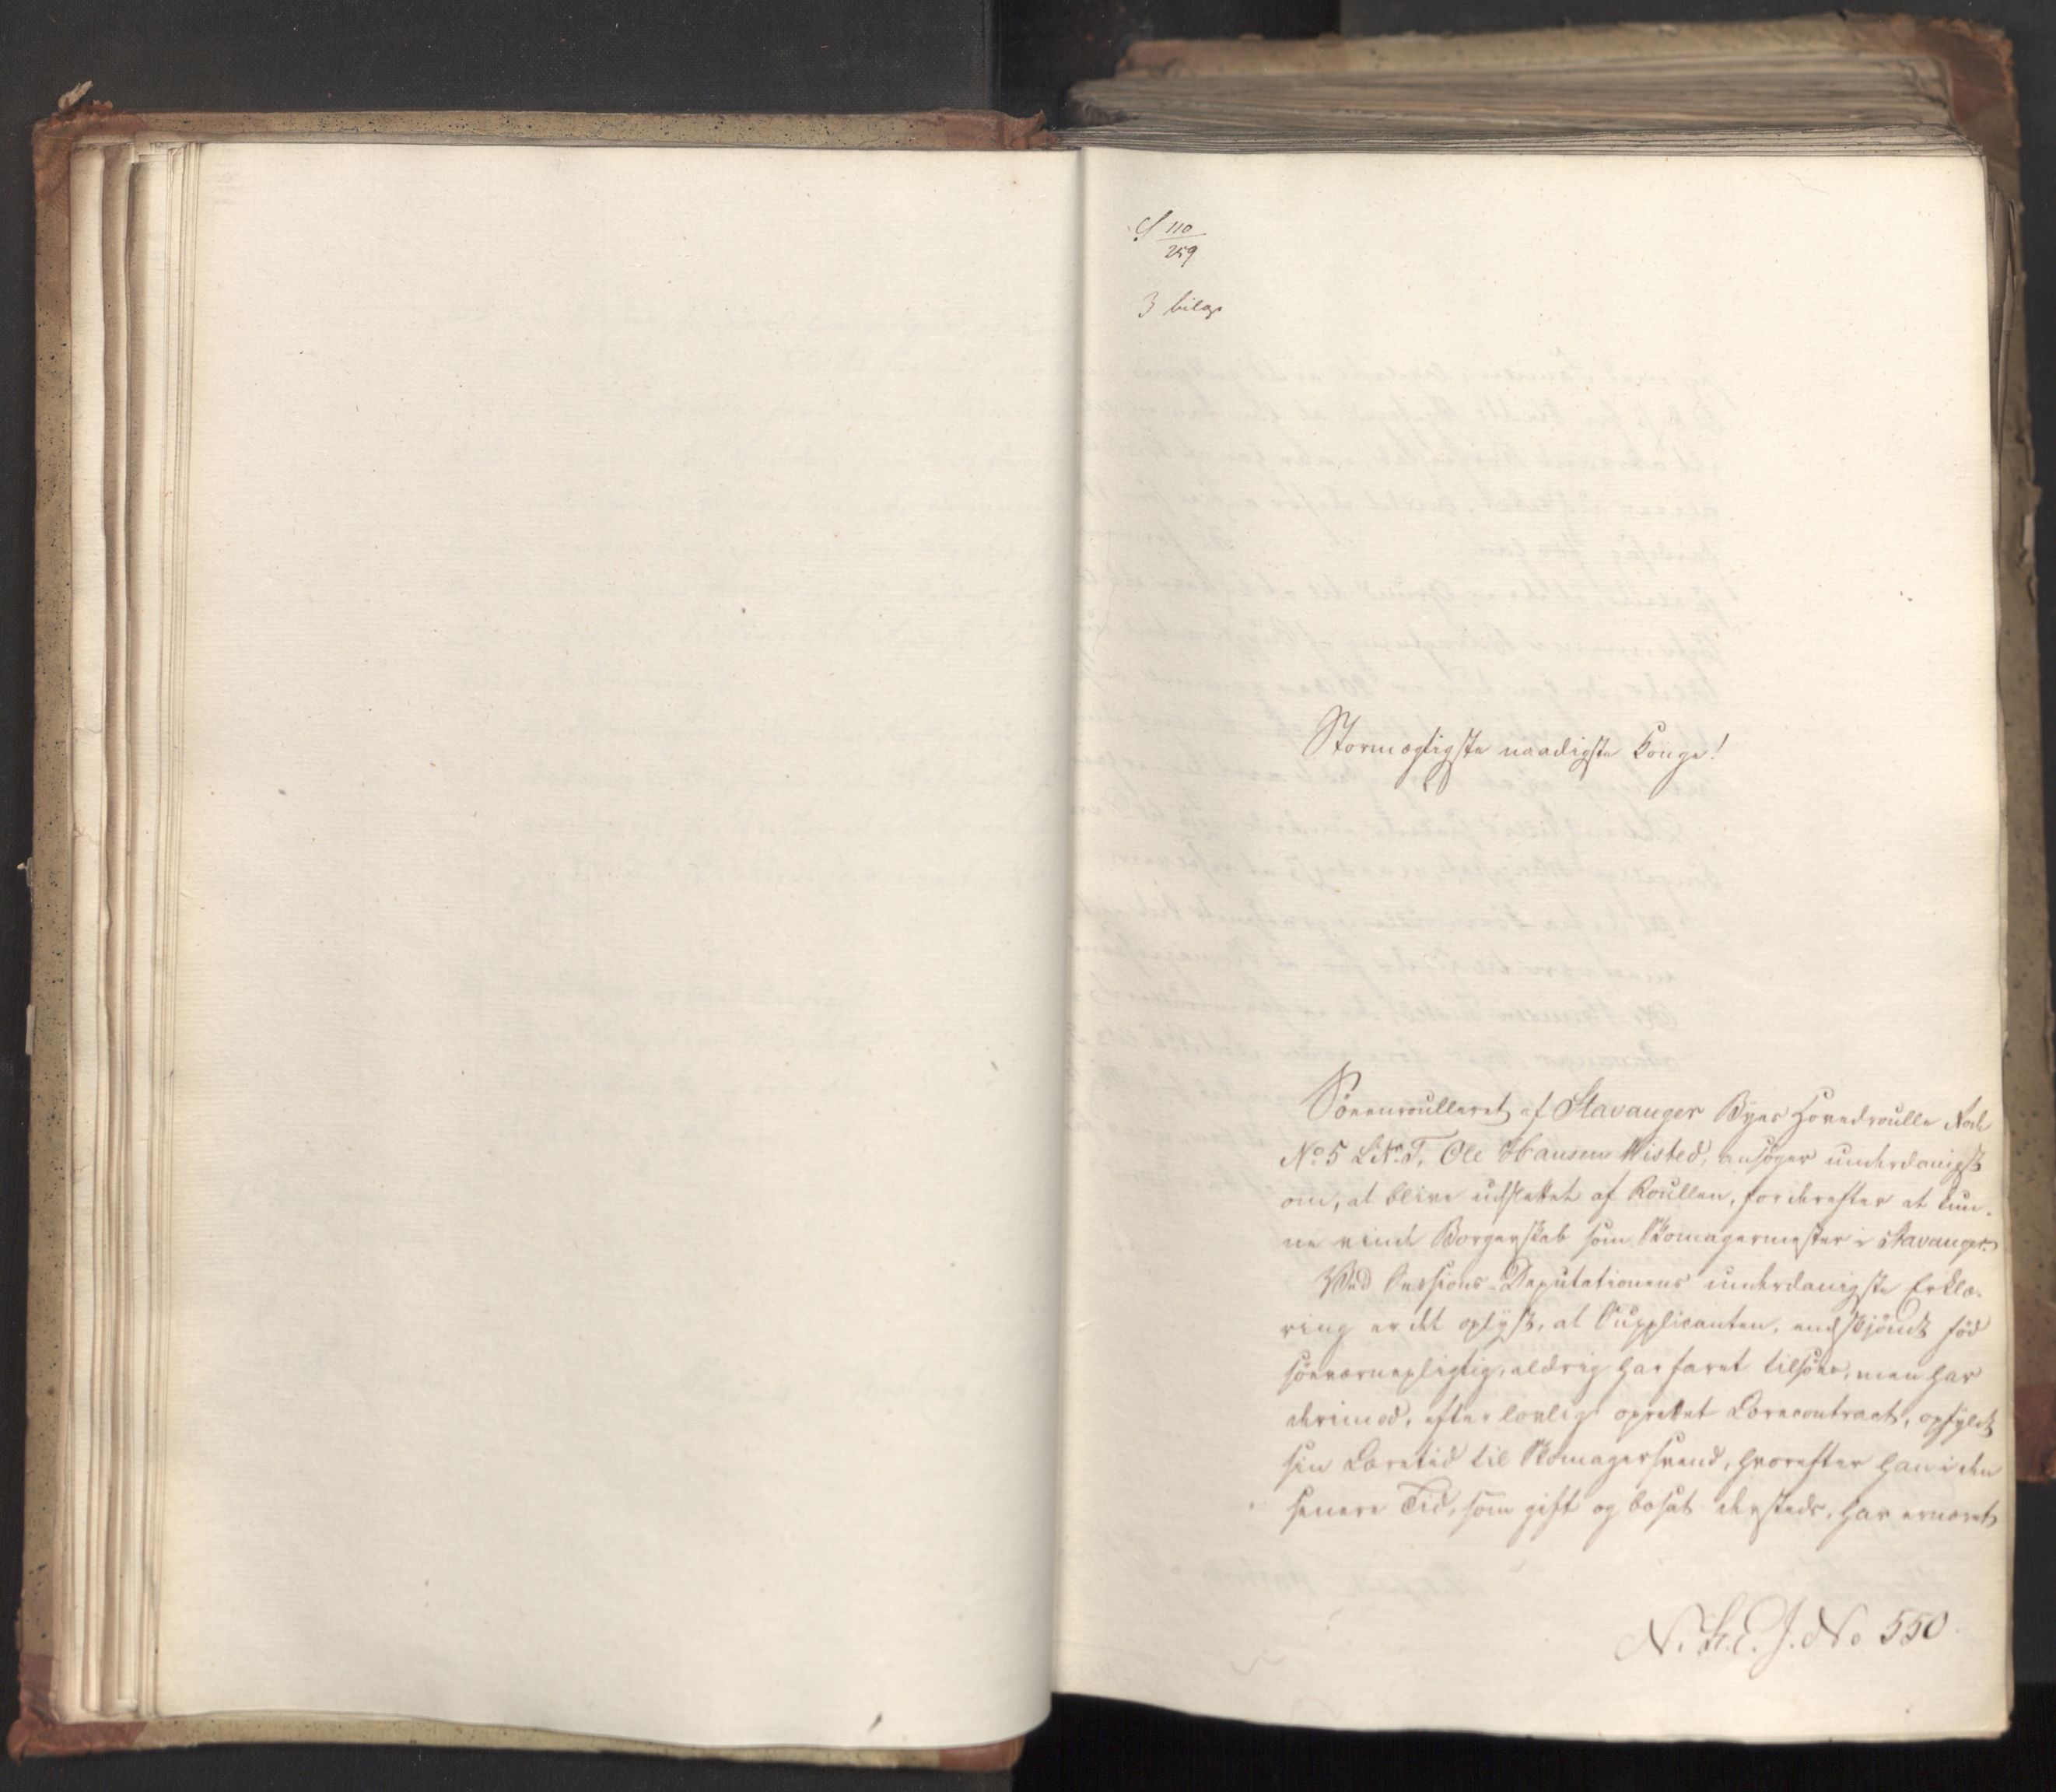 S 110/259
3 bilag
Stormægtigste naadigste Konge!
Søeenroulleret af Stavanger Byes Hovedroulle
No 5 Litr. T, Ole Hansen Wisted, ansøger underdanigst
om, at blive udslettet af Roullen, for derefter at kun-
ne vinde Borgerskab som Skomagermester i Stavanger.
Ved Sessions-Deputationens underdanigste Erklæ-
ring er det oplyst, at Supplicanten, endskjøndt fød
søeværnepligtig, aldrig har faret tilsøes, men har
derimod, efter lovlig oprettet Lærecontract, opfyldt
sin Læretid til Skomagersvend, hvorefter han i den
senere Tid, som gift og bosat dersteds, har ernæret
N. S. E. J. No 550